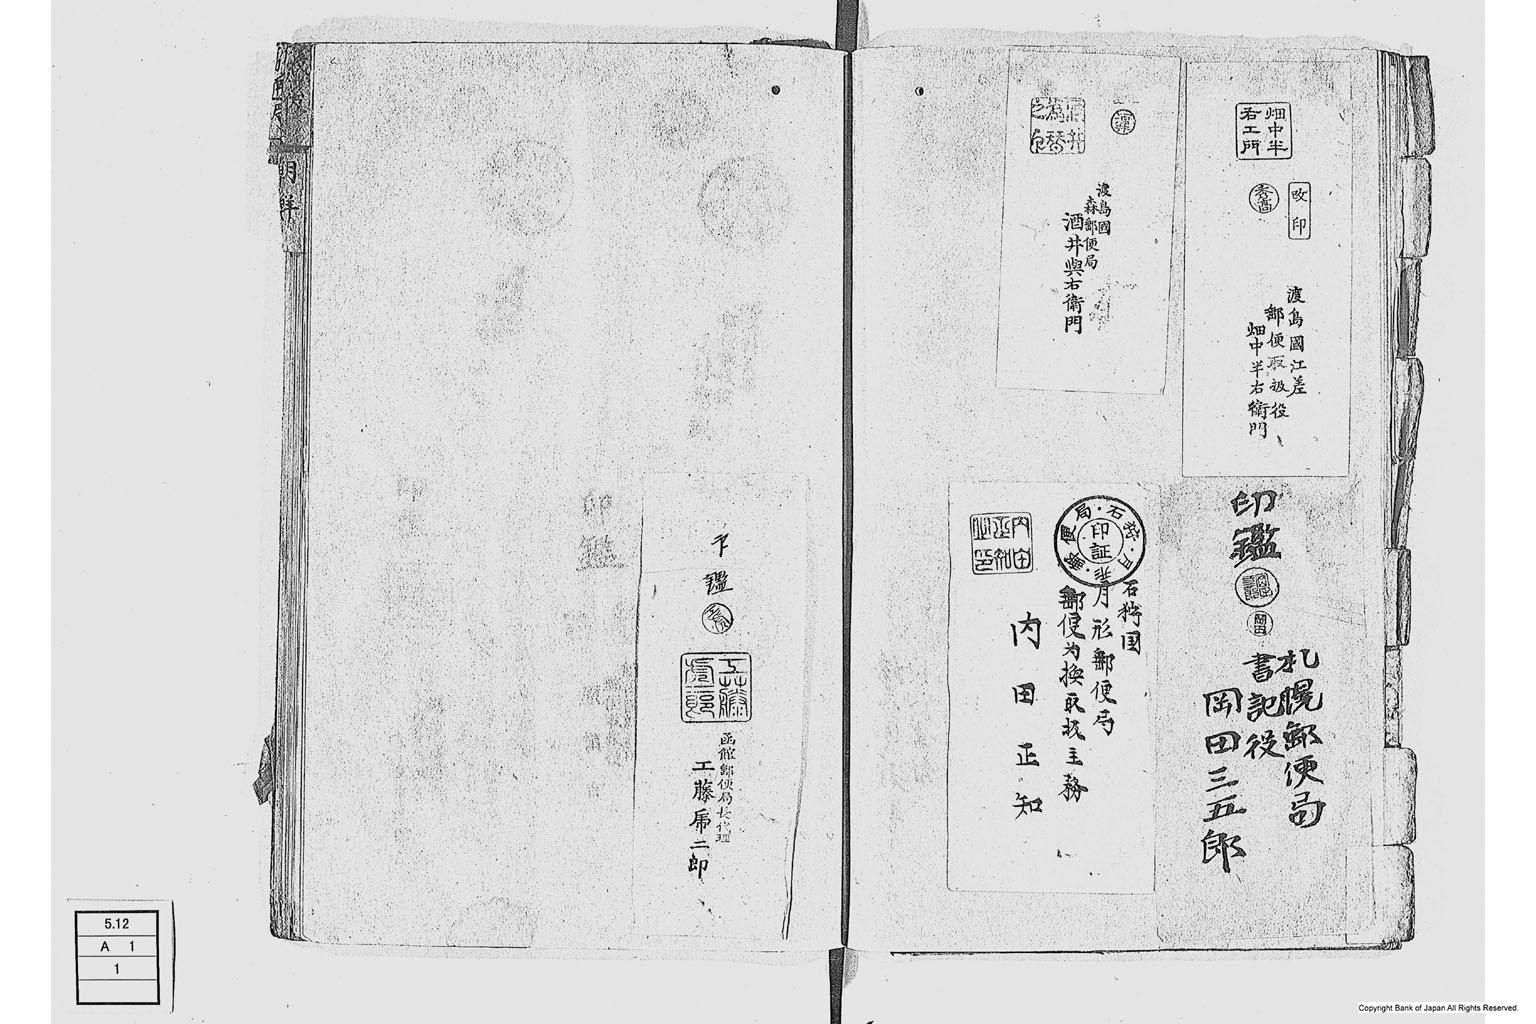 畑中半
右工門
改印
渡島國江差
郵便取扱役
畑中半右衛門
渡島國
森郵便局
酒井與右衛門
印鑑
札幌郵便局
書記役
岡田三五郎
石狩・月形・郵便局・
印証
内田
正知
之印
石狩国
月形郵便局
郵便为換取扱主務
内田正知
鑑
工藤
虎二
郎
函館郵便局長代理
工藤虎二郎
5.12
A 1
1
Copyright Bank of Japan All Rights Reserved.